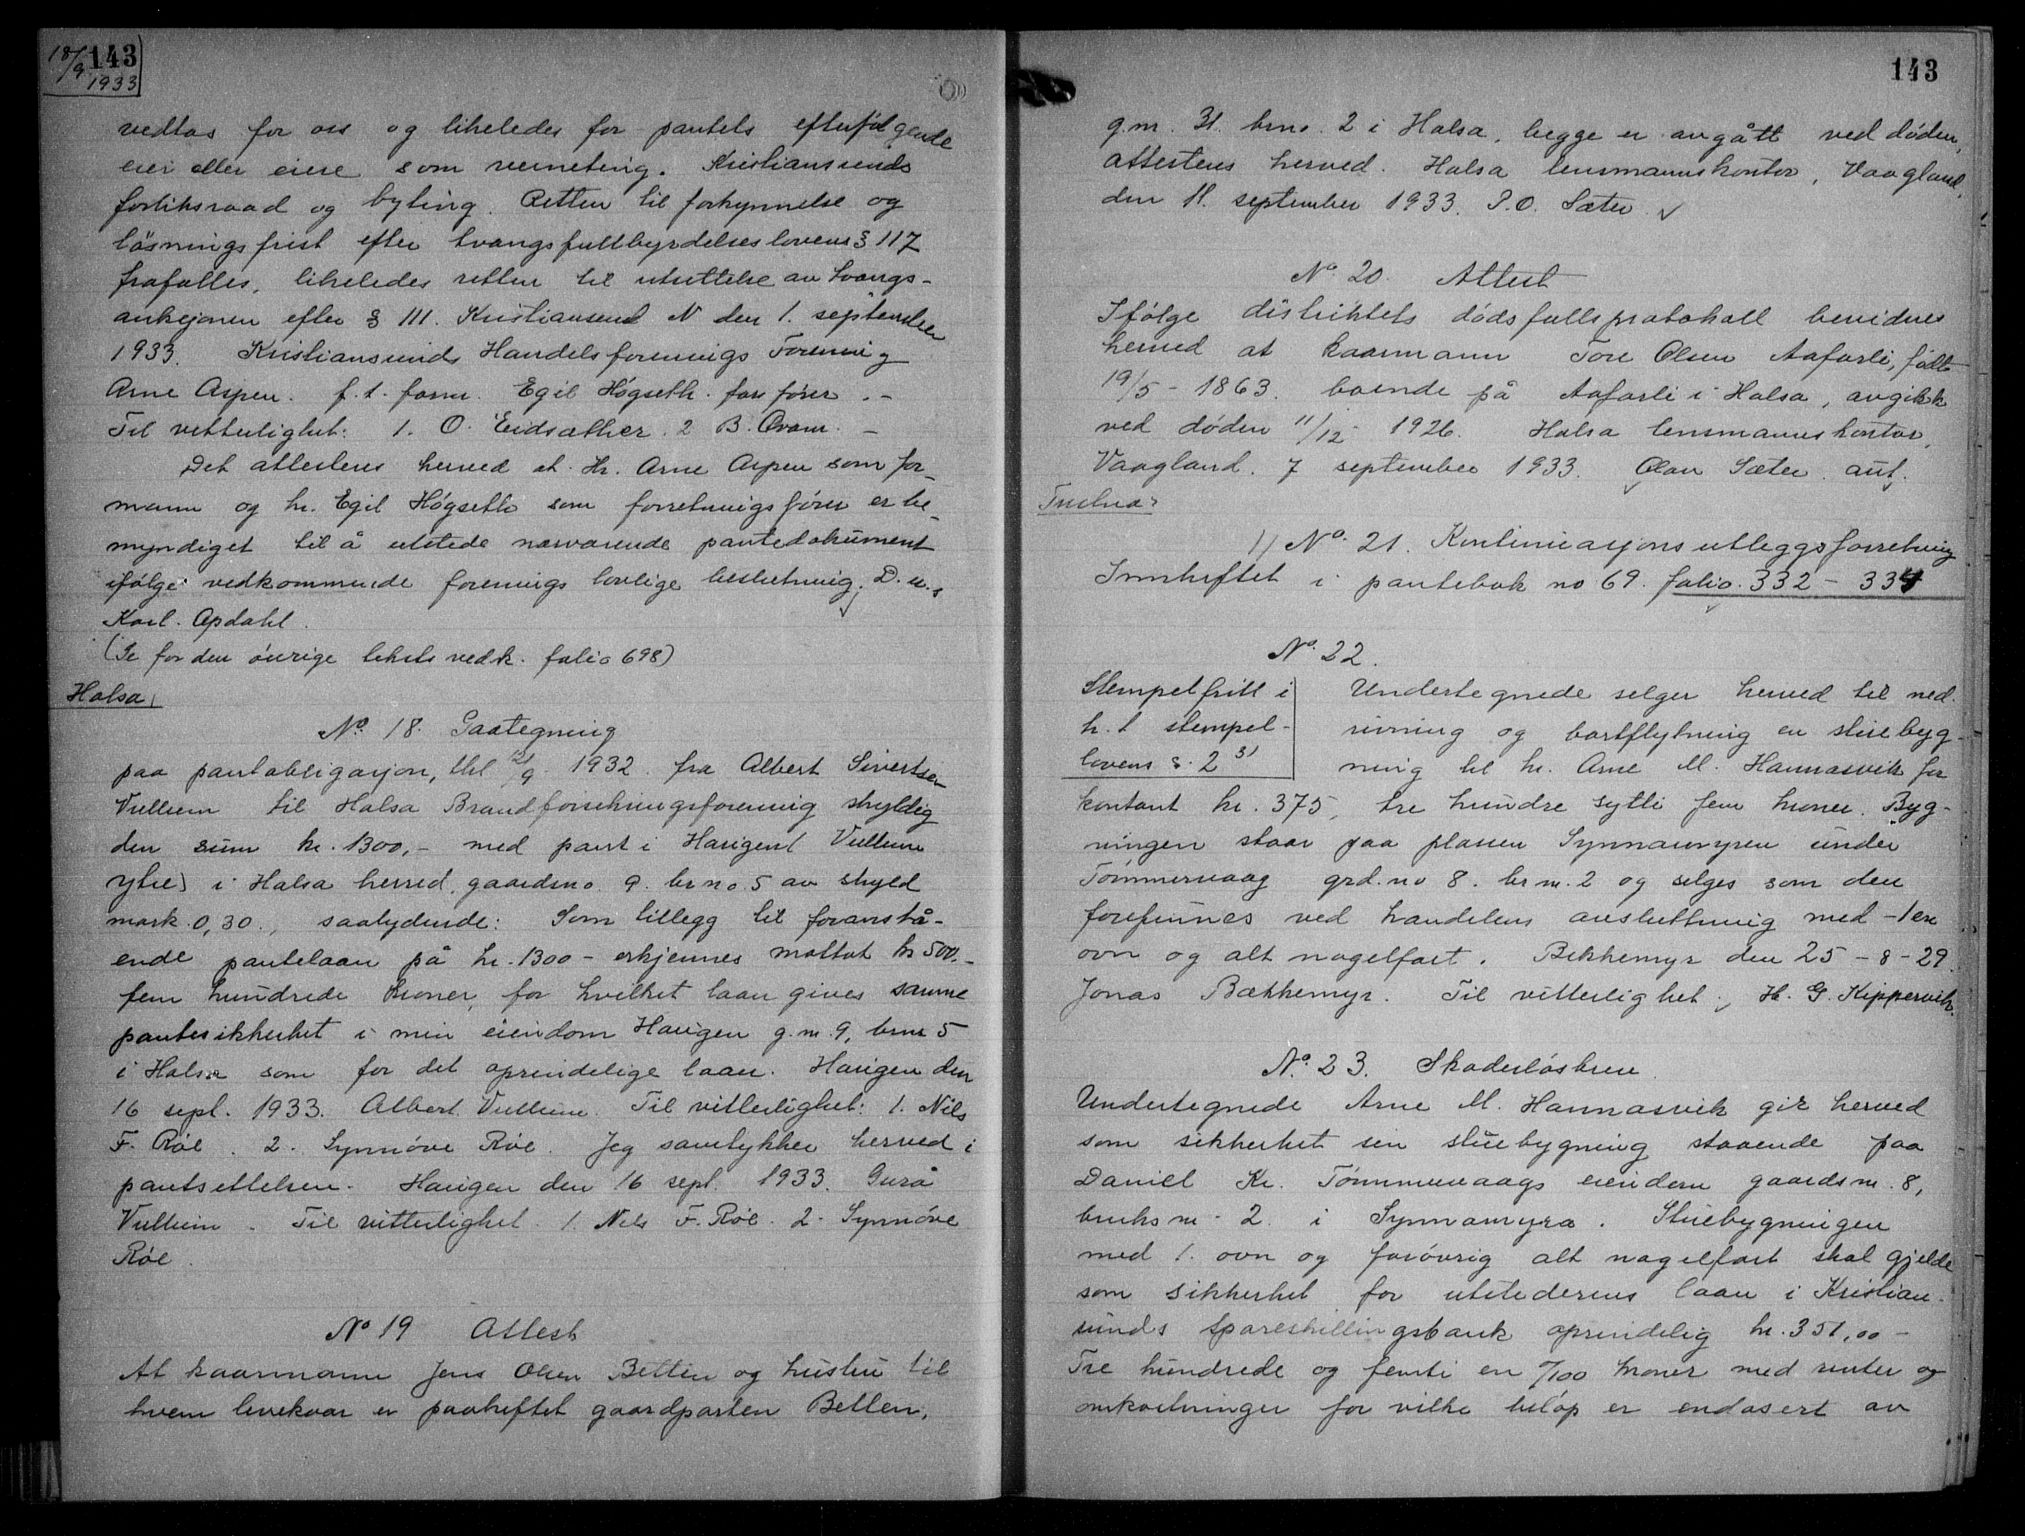 18/9 143
1933
vedtas for oss og likeledes for pantets efterfølgende
eier eller eiere som verneting. Kristiansunds
forliksraad og byting. Retten til forkynnelse og
løsningsfrist efter tvangsfullbyrdelseslovens § 117
frafalles, likeledes retten til utsettelse av tvangs-
auksjonen efter § 111. Kristiansund N den 1. september
1933. Kristiansunds Handelsforenings Forening
Arne Aspen. f.t. form. Egil Høgseth. forr.fører. -
Til vitterlighet: 1. O. Eidsæther. 2 B. Qvam. -
Det attesteres herved at Hr. Arne Aspen som for-
mann og hr. Egil Høgseth som forretningsfører er be-
myndiget til å utstede nærværende pantedokument
ifølge vedkommende forenings lovlige beslutning. D. u.s
Karl Opdahl.
(Se for den øvrige tekst vedk. folio 698)
Halsa
No. 18. Paategning
paa pantobligasjon, thl /9 1932 fra Albert Sivertsen
Vullum til Halsa Brandforsikringsforening skyldig
den sum kr. 1300,- med pant i Haugen (Vullum
ytre) i Halsa herred, gaardsno. 9. br no. 5 av skyld
mark 0,30., saalydende: Som tillegg til foranstå-
ende pantelaan på kr. 1300 - erkjennes mottat kr 500.-
fem hundrede kroner, for hvilket laan gives samme
pantesikkerhet i min eiendom Haugen g.nr. 9, brnr 5
i Halsa som for det oprindelige laan. Haugen den
16 sept. 1933. Albert Vullum. Til vitterlighet: 1. Nils
F. Røe. 2. Synnøve Røe. Jeg samtykker herved i
pantsettelsen. Haugen den 16 sept. 1933. Gura
Vullum. Til vitterlighet. 1. Nils F. Røe. 2. Synnøve
Røe.
No 19 Attest
At kaarmann Jens Olsen Betten og hustru til
hvem levekaar er paaheftet gaardparten Betten,
143
g.nr. 31. brno. 2 i Halsa, begge er avgått ved døden,
attesteres herved. Halsa lensmannskontor, Vaagland,
den 11. september 1933. P.O. Sæter
No. 20. Attest
Ifølge distriktets dødsfallsprotokoll bevidnes
herved at kaarmann Tore Olsen Aafarli, født
19/5 - 1863. boende på Aafarli i Halsa, avgikk
ved døden 11/12 1926. Halsa lensmannskontor,
Vaagland. 7 september 1933. Olav Sæter aut.
Tustna
1) No. 21. Kontinuasjonsutleggsforretning
Innheftet i pantebok no 69. folio. 332 - 334
No. 22.
Stempelfritt i
h. t stempel-
lovens §. 2 3)
Undertegnede selger herved til ned-
rivning og bortflytning en stuebyg-
ning til hr. Arne M. Hannasvik for
kontant kr. 375, tre hundre sytti fem kroner. Byg-
ningen staar paa plassen Synnamyren under
Tømmervaag grd. no 8. br nr. 2 og selges som den
forefinnes ved handelens avslutning med -1 en
ovn og alt nagelfast. Bekkemyr den 25 - 8 - 29.
Jonas Bækkemyr. Til vitterlighet. H. G. Kippervik.
No. 23. Skadesløsbrev
Undertegnede Arne M. Hannasvik gir herved
som sikkerhet sin stuebygning staaende paa
Daniel Kr. Tømmervaags eiendom gaardsnr. 8,
bruksnr. 2 i Synnamyra. Stuebygningen
med 1. ovn og forøvrig alt nagelfast skal gjelde
som sikkerhet for utstederens laan i Kristian-
sunds Spareskillingsbank oprindelig kr. 351,00 -
Tre hundrede og femti en º/100 kroner med renter og
omkostninger for vilke beløp er endosert av